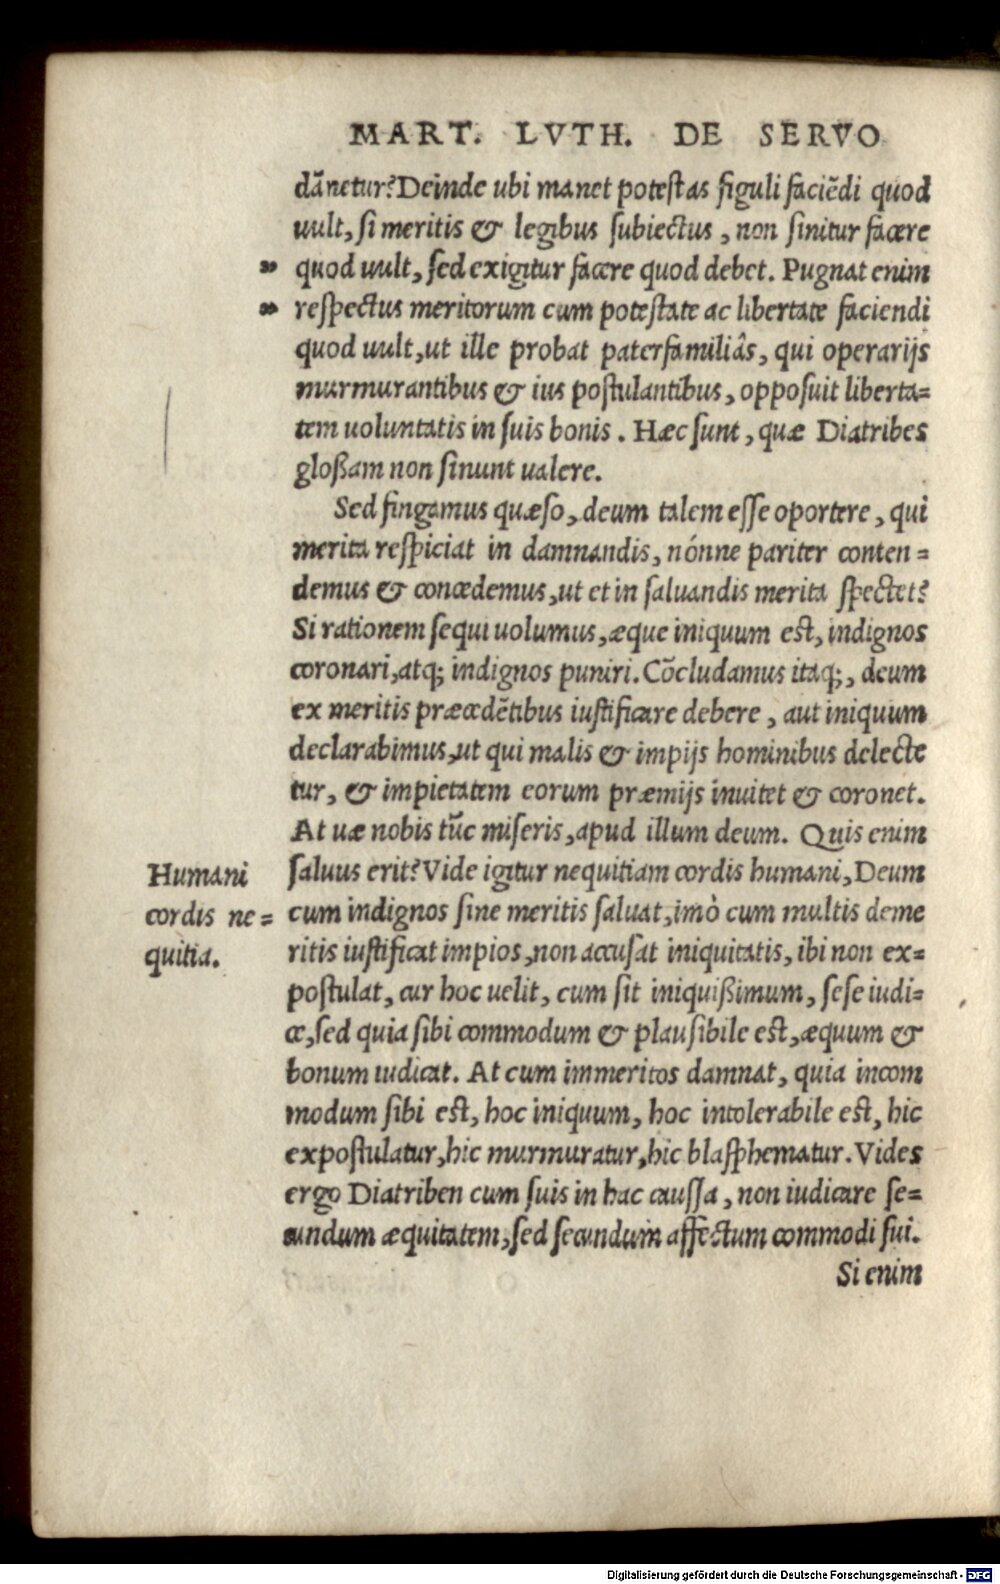 MART. LVTH. DE SERVO
dānetur? Deinde ubi manet potestas figuli faciēdi quod
uult, si meritis & legibus subiectus, non sinitur facere
„ quod uult, sed exigitur facere quod debet. Pugnat enim
„ respectus meritorum cum potestate ac libertate faciendi
quod uult, ut ille probat paterfamiliâs, qui operarijs
murmurantibus & ius postulantibus, opposuit liberta=
tem uoluntatis in suis bonis. Hæc sunt, quæ Diatribes
gloßam non sinunt ualere.
Sed fingamus quæso, deum talem esse oportere, qui
merita respiciat in damnandis, nónne pariter conten=
demus & concedemus, ut et in saluandis merita spectet?
Si rationem sequi uolumus, æque iniquum est, indignos
coronari, atq; indignos puniri. Cōcludamus itaq;, deum
ex meritis præcedētibus iustificare debere, aut iniquum
declarabimus, ut qui malis & impijs hominibus delecte
tur, & impietatem eorum præmijs inuitet & coronet.
At uæ nobis tūc miseris, apud illum deum. Quis enim
saluus erit? Vide igitur nequitiam cordis humani, Deum
cum indignos sine meritis saluat, imò cum multis deme
ritis iustificat impios, non accusat iniquitatis, ibi non ex=
postulat, cur hoc uelit, cum sit iniquißimum, sese iudi=
ce, sed quia sibi commodum & plausibile est, æquum &
bonum iudicat. At cum immeritos damnat, quia incom
modum sibi est, hoc iniquum, hoc intolerabile est, hic
expostulatur, hic murmuratur, hic blasphematur. Vides
ergo Diatriben cum suis in hac caussa, non iudicare se=
cundum æquitatem, sed secundum affectum commodi sui.
Si enim
Humani
cordis ne=
quitia.
Digitalisierung gefördert durch die Deutsche Forschungsgemeinschaft - DFG